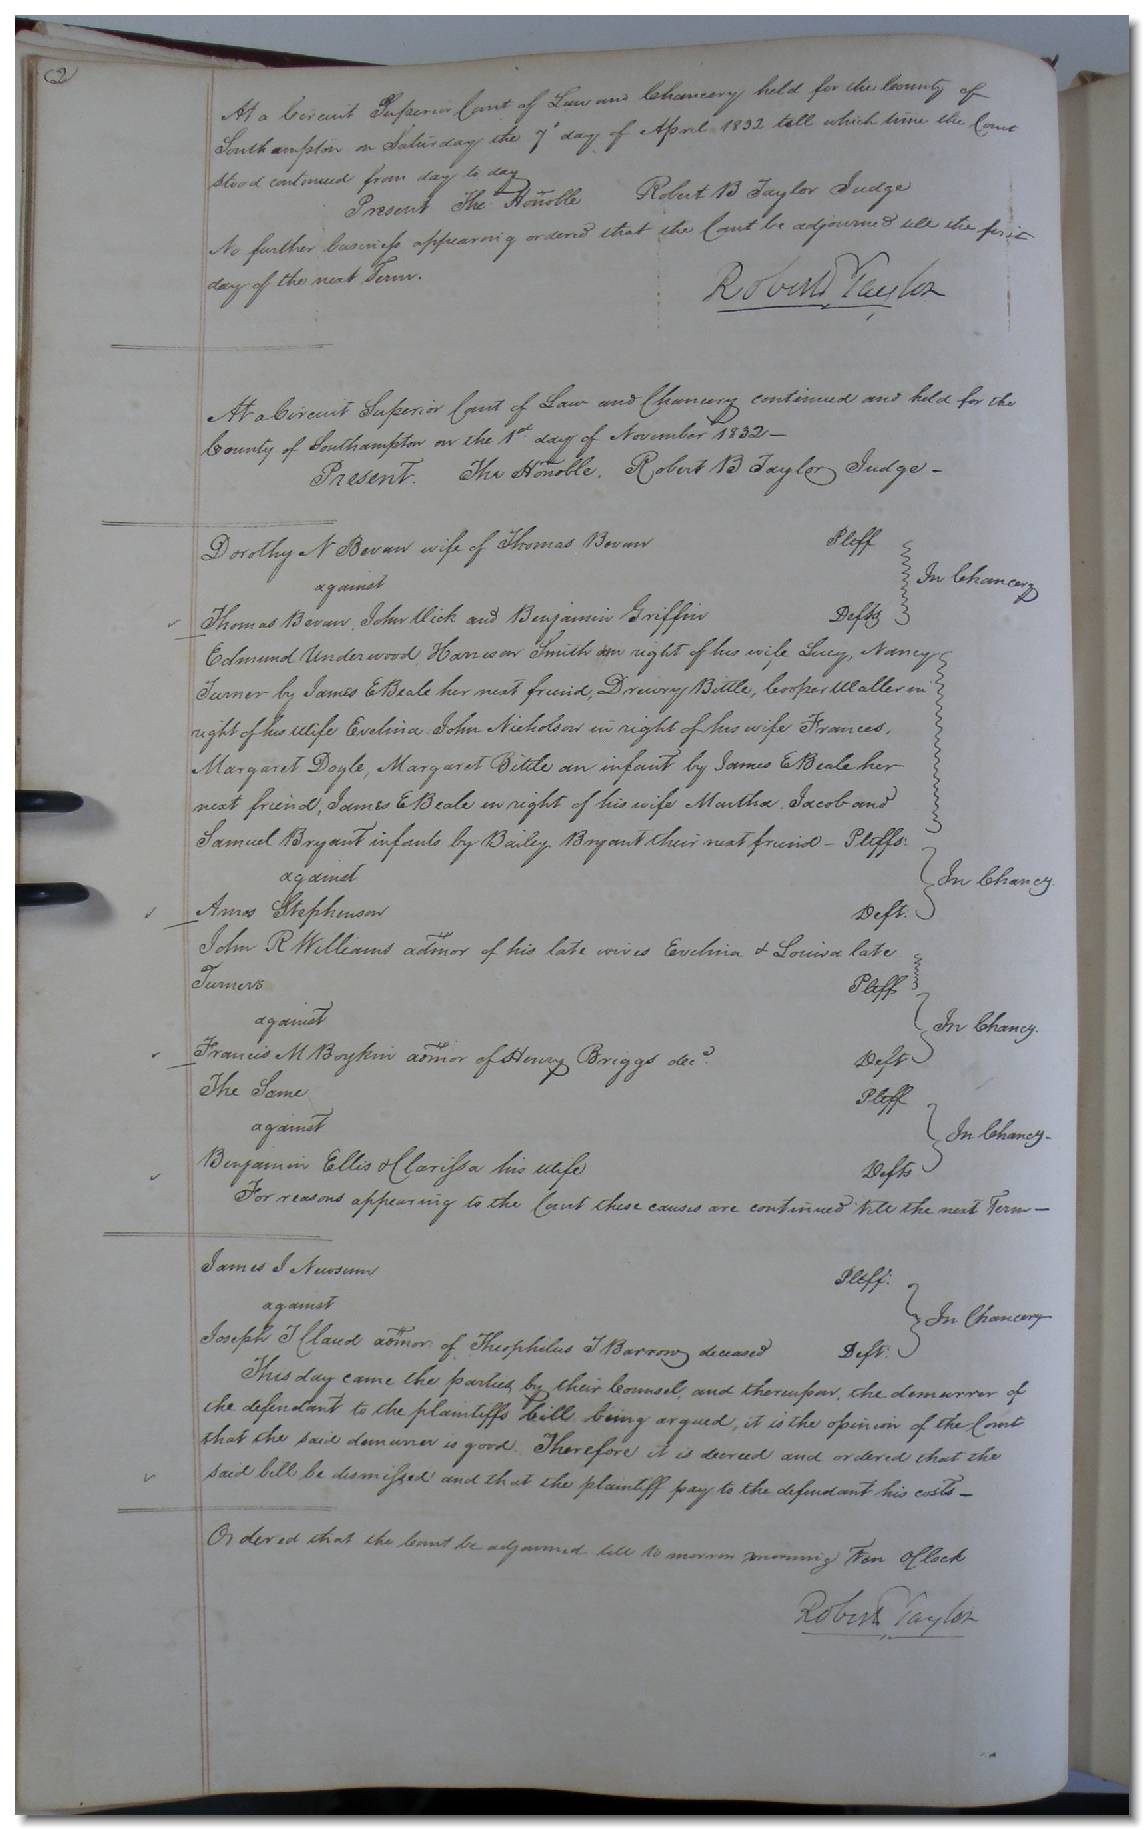 2
At a Circuit Superior Court of Law and Chancery held for the County of
Southampton on Saturday the 7th day of April 1832 till which time the Court
stood continued from day to day
Present The Honoble Robert B Taylor Judge
No further business appearing ordered that the Court be adjourned till the first
day of the next Term.
Robert B Taylor
At a Circuit Superior Court of Law and Chancery continued and held for the
County of Southampton on the 1st day of November 1832 —
Present. The Honoble. Robert B Taylor Judge —
Dorothy N Bevan wife of Thomas Bevan Pltff
against In Chancery
Thomas Bevan, John Vick and Benjamin Griffin Defts
Edmund Underwood, Harrison Smith in right of his wife Lucy, Nancy
Turner by James E Beale her next friend, Drewry Bittle, Cooper Waller in
right of his Wife Evelina John Nicholson in right of his wife Frances,
Margaret Doyle, Margaret Bittle an infant by James E Beale her
next friend, James E Beale in right of his wife Martha, Jacob and
Samuel Bryant infants by Bailey Bryant their next friend – Pltffs.
against In Chancy.
Amos Stephenson Deft.
John R Williams admor of his late wives Evelina & Louisa late
Turners Pltff
against In Chancy.
Francis M Boykin admor of Henry Briggs decd. Deft
The Same Pltff
against In Chancy.
Benjamin Ellis & Clarissa his Wife Defts
For reasons appearing to the Court these causes are continued till the next Term —
James J Newsum Pltff.
against In Chancery
Joseph T Claud admor. of Theophilus T Barrow deceased Deft.
This day came the parties by their Counsel, and thereupon, the demurrer of
the defendant to the plaintiffs bill being argued, it is the opinion of the Court
that the said demurrer is good. Therefore it is decreed and ordered that the
said bill be dismissed and that the plaintiff pay to the defendant his costs —
Ordered that the Court be adjourned till to morrow morning Ten oClock
Robert B Taylor